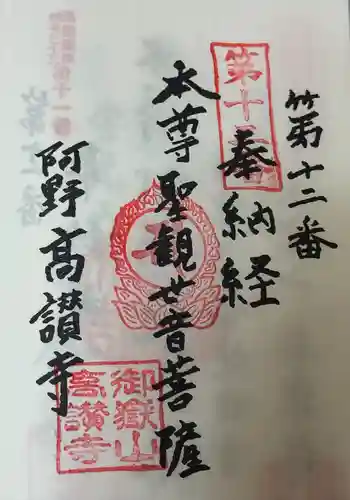 第十二番
奉納経
本尊聖観世音菩薩
阿野高讃寺
御嶽山
高讃寺